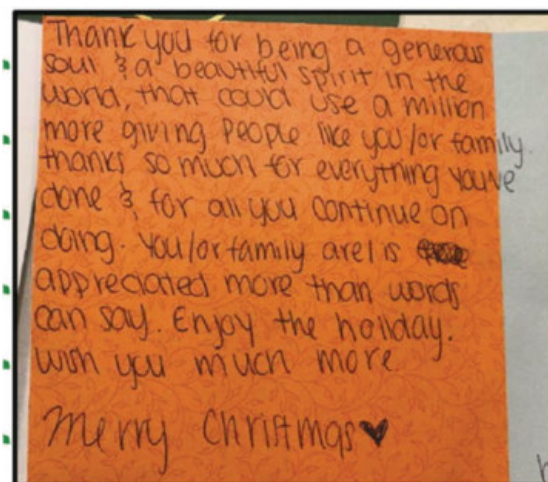 Thank you for being a generous
soul & a beautiful spirit in the
world, that could use a million
more giving people like you/or family.
thanks so much for everything you've
done & for all you continue on
doing. You/or family are/is
appreciated more than words
can say. Enjoy the holiday.
wish you much more.
Merry Christmas♥